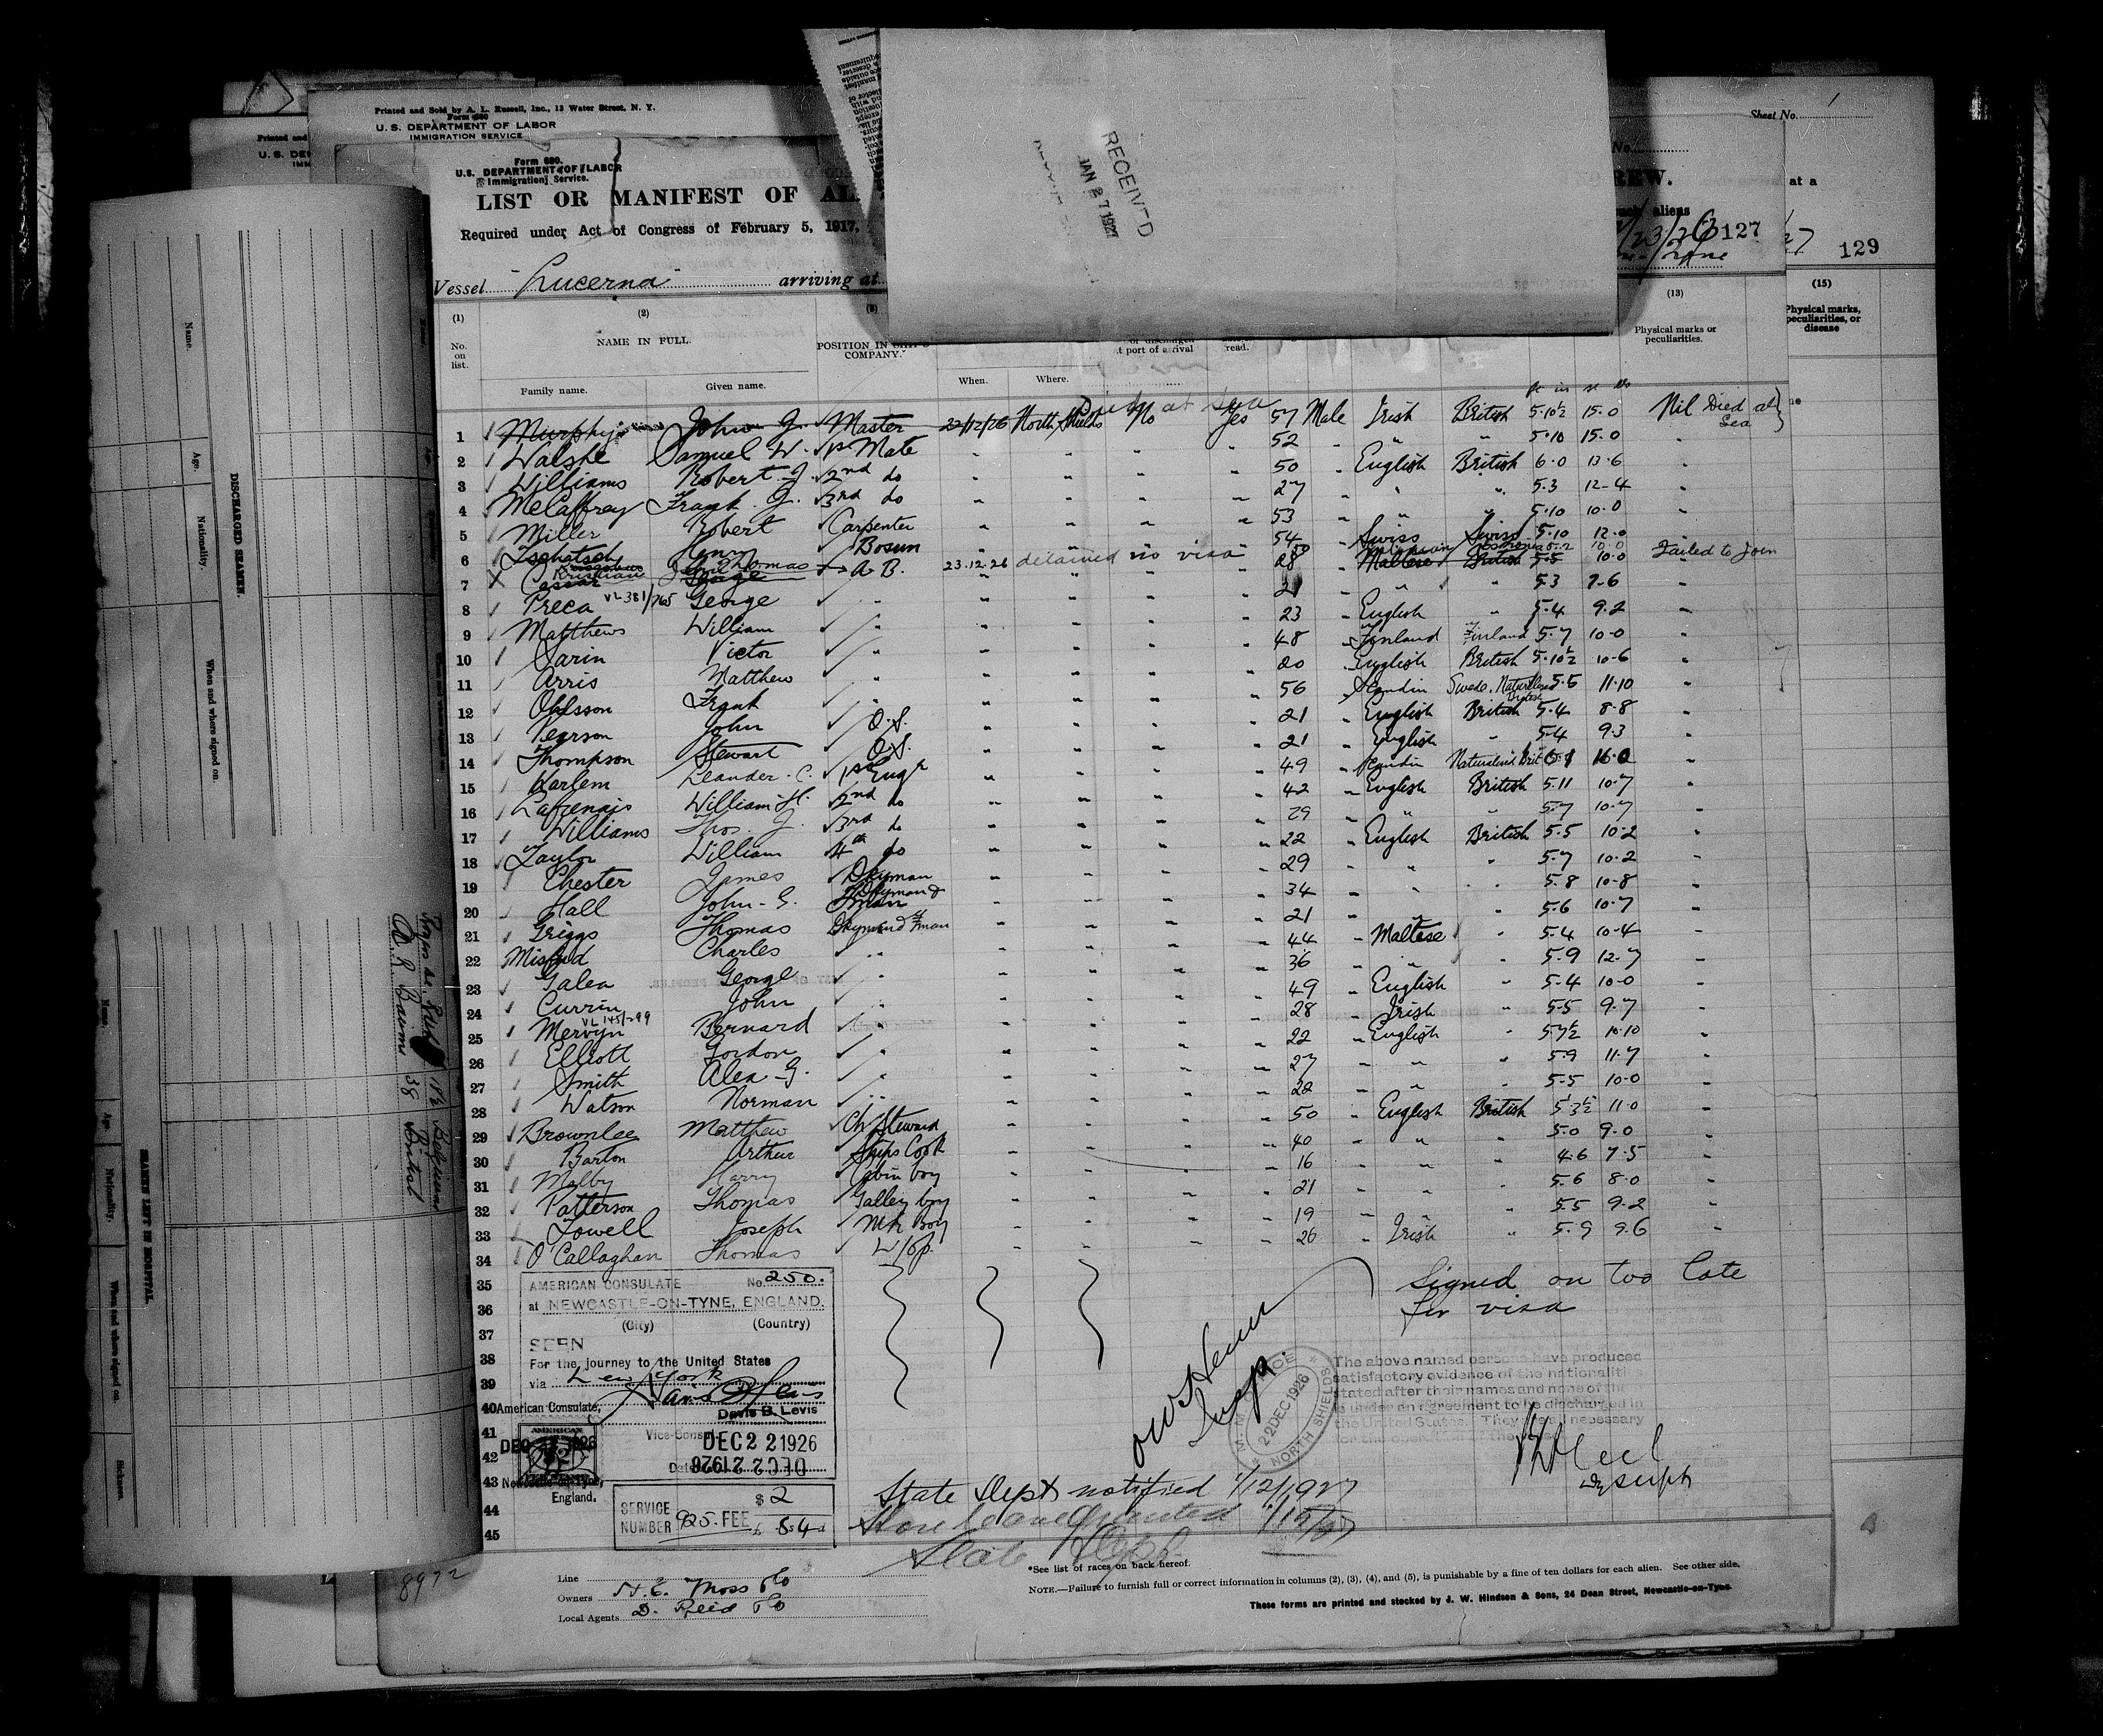 Sheet No. 1
Printed and Sold by A. L. Russell, Inc., 13 Water Street, N. Y.
Form 680
U. S. DEPARTMENT OF LABOR
IMMIGRATION SERVICE
Printed and
U. S. DE
RECEIVED
JAN 27 1927
Form 680.
U.S. DEPARTMENT OF LABOR
Immigration Service.
LIST OR MANIFEST OF AL REW.
Required under Act of Congress of February 5, 1917, such aliens
at a
127
129
Vessel Lucerna arriving at
(1) (2) (3) (13) (15)
No. on list. NAME IN FULL. POSITION IN SHIP'S COMPANY. at port of arrival read. Physical marks or peculiarities. Physical marks, peculiarities, or disease
Family name. Given name. When. Where.
Died at sea
1 Murphy John J. Master 22/12/26 North Shields No Yes 57 Male Irish British 5.10½ 15.0 Nil Died at Sea
2 Walshe Samuel W. 1st Mate " " " " 52 " " " 5.10 15.0 "
3 Williams Robert J. 2nd do " " " " 50 " English British 6.0 13.6 "
4 McCaffrey Frank J. 3rd do " " " " 27 " " " 5.3 12-4 "
5 Miller Robert Carpenter " " " " 53 " " " 5.10 10.0 "
6 Tschatsch Henry Bosun 54 Swiss Swiss 5.10 12.0
7 X Cassar George A.B. 23.12.26 detained no visa 28 Maltese British 5.5 10.0 Failed to join
8 Preca VL 381/765 George " " " " " 21 " " " 5.3 9.6 "
9 Matthews William " " " " " 23 " English " 5.4 9.2 "
10 Sarin Victor " " " " " 48 " Finland Finland 5.7 10-0 "
11 Arris Matthew " " " " " 20 " English British 5.10½ 10-6 "
12 Ohlsson Frank " " " " " 56 " Scandin Swede. Naturalised British 5.5 11.10 "
13 Pearson John O.S. " " " " 21 " English British 5.4 8.8 "
14 Thompson Stewart O.S. " " " " 21 " English " 5.4 9.3 "
15 Harlem Leander C. 1st Engr " " " " 49 " Scandin Naturalised Brit 16.0 "
16 Lafrenais William H. 2nd do " " " " 42 " English British 5.11 10.7 "
17 Williams Thos. J. 3rd do " " " " 29 " " " 5.7 10.7
18 Taylor William 4th do " " " " 22 " English British 5.5 10.2 "
19 Chester James Dkyman " " " " 29 " " " 5.7 10.2 "
20 Hall John G. Dkyman & Fman " " " " 34 " " " 5.8 10-8 "
21 Griggs Thomas Dkyman & Fman " " " " 21 " " " 5.6 10.7 "
22 Mifsud Charles " " " " " 44 " Maltese " 5.4 10-4 "
23 Galea George " " " " " 36 " " " 5.9 12.7 "
24 Currin John " " " " " 49 " English " 5.4 10-0 "
25 Mervyn VL 145/299 Bernard " " " " " 28 " Irish " 5.5 9.7 "
26 Elliott Gordon " " " " " 22 " English 5.7½ 10.10 "
27 Smith Alex G. " " " " " 27 " " " 5.9 11.7 "
28 Watson Norman " " " " " 22 " " 5.5 10-0 "
29 Brownlee Matthew Ch Steward " " " " 50 " English British 5.3½ 11.0 "
30 Barton Arthur Ships Cook " " " " 40 " " " 5.0 9.0 "
31 Malby Harry Cabin boy " " " " 16 " " " 4.6 7.5 "
32 Patterson Thomas Galley boy " " " " 21 " " " 5.6 8.0 "
33 Lowell Joseph M.R. Boy " " " " 19 " " " 5.5 9.2 "
34 O'Callaghan Thomas W/Op. " " " " 26 " Irish " 5.9 9.6 "
35
36
37
38
39
40
41
42
43
44
45
AMERICAN CONSULATE No. 250.
at NEWCASTLE-ON-TYNE, ENGLAND.
(City) (Country)
SEEN
For the journey to the United States
via New York
American Consulate,
Davis B. Levis
Vice-Consul
DEC 22 1926
Date DEC 22 1926
Newcastle-on-Tyne, England.
SERVICE NUMBER 925. FEE $ 2 £ 8s4d
Signed on too late
for visa
M.M. OFFICE
22 DEC 1926
NORTH SHIELDS
The above named persons have produced
satisfactory evidence of the nationality
stated after their names and none of them
is under an agreement to be discharged in
the United States. They are all necessary
for the operation of the vessel
Dy Supt
State Dept notified 1/12/1927
Shore leave Granted 1/12/27
State Dept
8972
Line
Owners H.E. Moss & Co
Local Agents D. Reid & Co
*See list of races on back hereof.
NOTE.—Failure to furnish full or correct information in columns (2), (3), (4), and (5), is punishable by a fine of ten dollars for each alien. See other side.
These forms are printed and stocked by J. W. Hindson & Sons, 24 Dean Street, Newcastle-on-Tyne.
DISCHARGED SEAMEN.
Name. Age. Nationality. When and where signed on.
SEAMEN LEFT IN HOSPITAL.
Name. Age. Nationality. When and where signed on. Sickness.
38 British